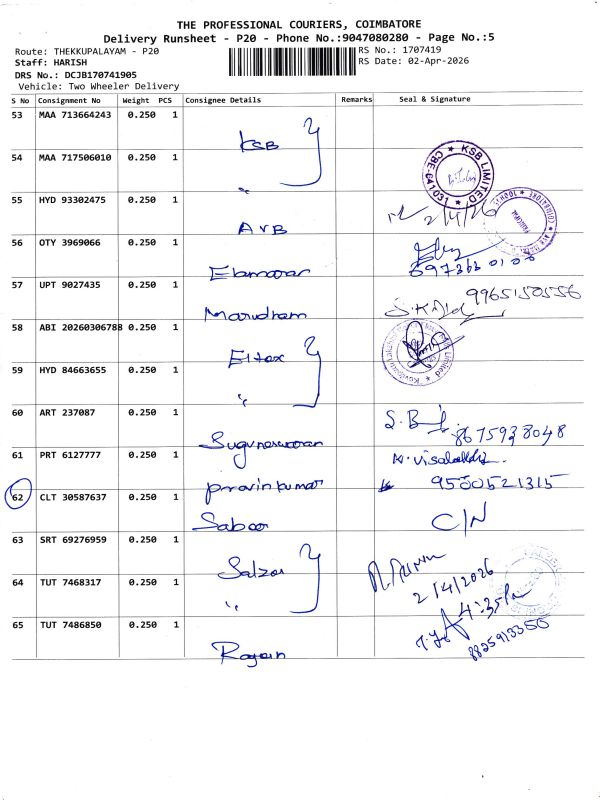 THE PROFESSIONAL COURIERS, COIMBATORE
Delivery Runsheet - P20 - Phone No.:9047080280 - Page No.:5
Route: THEKKUPALAYAM - P20 RS No.: 1707419
Staff: HARISH RS Date: 02-Apr-2026
DRS No.: DCJB170741905
Vehicle: Two Wheeler Delivery
S No Consignment No Weight PCS Consignee Details Remarks Seal & Signature
53 MAA 713664243 0.250 1
KSB
54 MAA 717506010 0.250 1
"
KSB LIMITED
CBE-641031
55 HYD 93302475 0.250 1
AVB 2/4/26
56 OTY 3969066 0.250 1
57 UPT 9027435 0.250 1
Marudham 9965150556
58 ABI 20260306788 0.250 1
Eltex
59 HYD 84663655 0.250 1
"
Limited
60 ART 237087 0.250 1
Suguneswaran S.B 8675938048
61 PRT 6127777 0.250 1
pravinkumar 9500521315
62 CLT 30587637 0.250 1
Saboor C/N
63 SRT 69276959 0.250 1
Salzer
64 TUT 7468317 0.250 1
" 2/4/2026
4:35Pm
65 TUT 7486850 0.250 1
8825913350